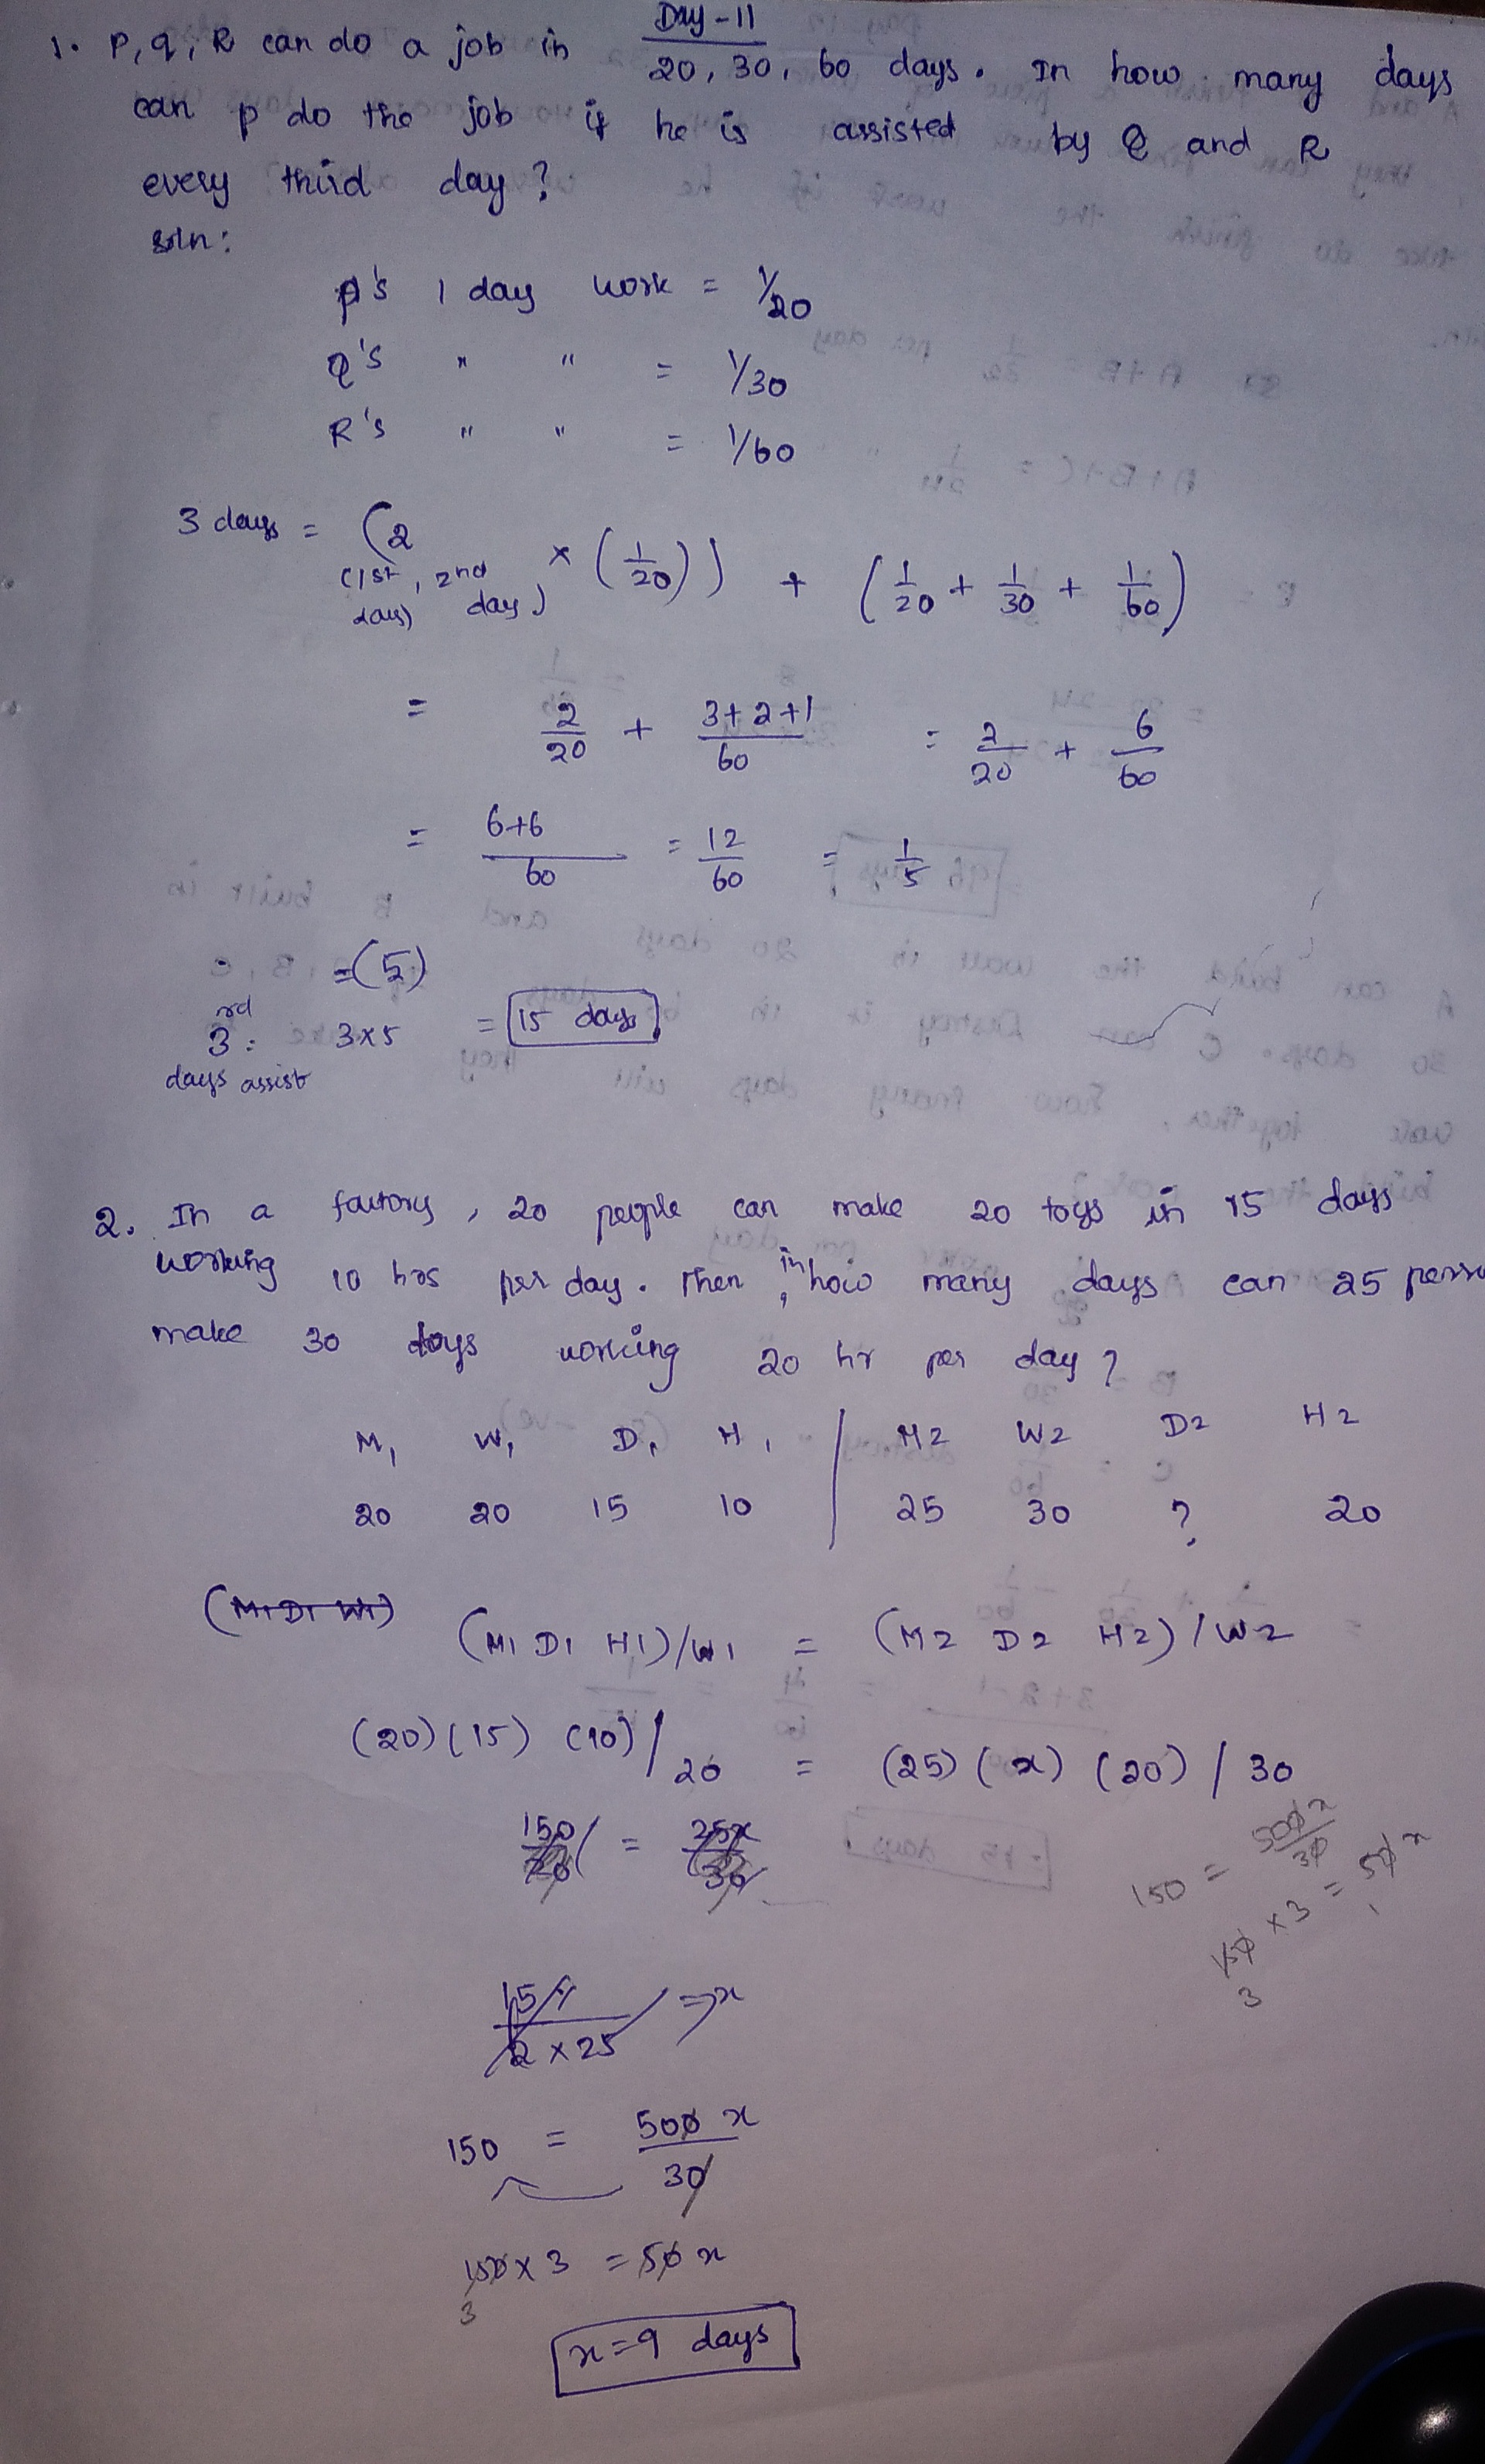 Day-11
1. P, q, R can do a job in 20, 30, 60 days. In how many days
can p do the job if he is assisted by Q and R
every third day?
soln:
P's 1 day work = 1/20
Q's " " = 1/30
R's " " = 1/60
3 days = (2 × (1/20)) + (1/20 + 1/30 + 1/60)
(1st, 2nd
day) day)
= 2/20 + 3+2+1/60 = 2/20 + 6/60
= 6+6/60 = 12/60 = 1/5
= (5)
3rd : 3×5 = 15 days
days assist
2. In a factory, 20 people can make 20 toys in 15 days
working 10 hrs per day. Then, in how many days can 25
make 30 toys working 20 hr per day?
M1 W1 D1 H1 | M2 W2 D2 H2
20 20 15 10 | 25 30 ? 20
(M1 D1 W1)
(M1 D1 H1)/W1 = (M2 D2 H2)/W2
(20)(15)(10)/20 = (25)(x)(20)/30
150/20 = 25x/30
150 = 500x/30
150 × 3 = 50x
3
2×25 = x
150 = 500x/30
150×3 = 50x
3
x=9 days